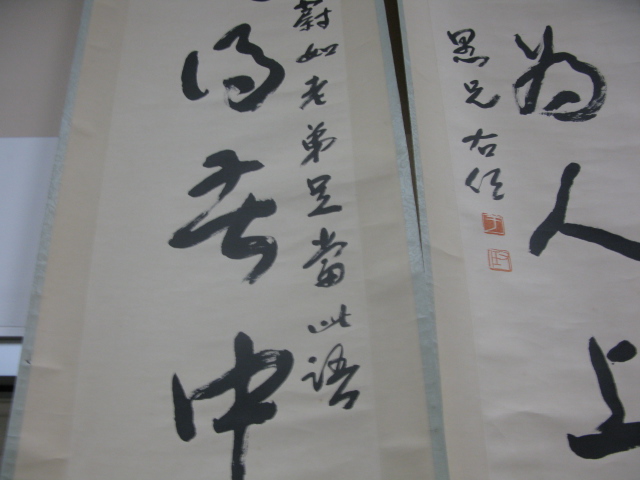 為人上
愚兄右任
蔚如老弟足當此語
得苦中